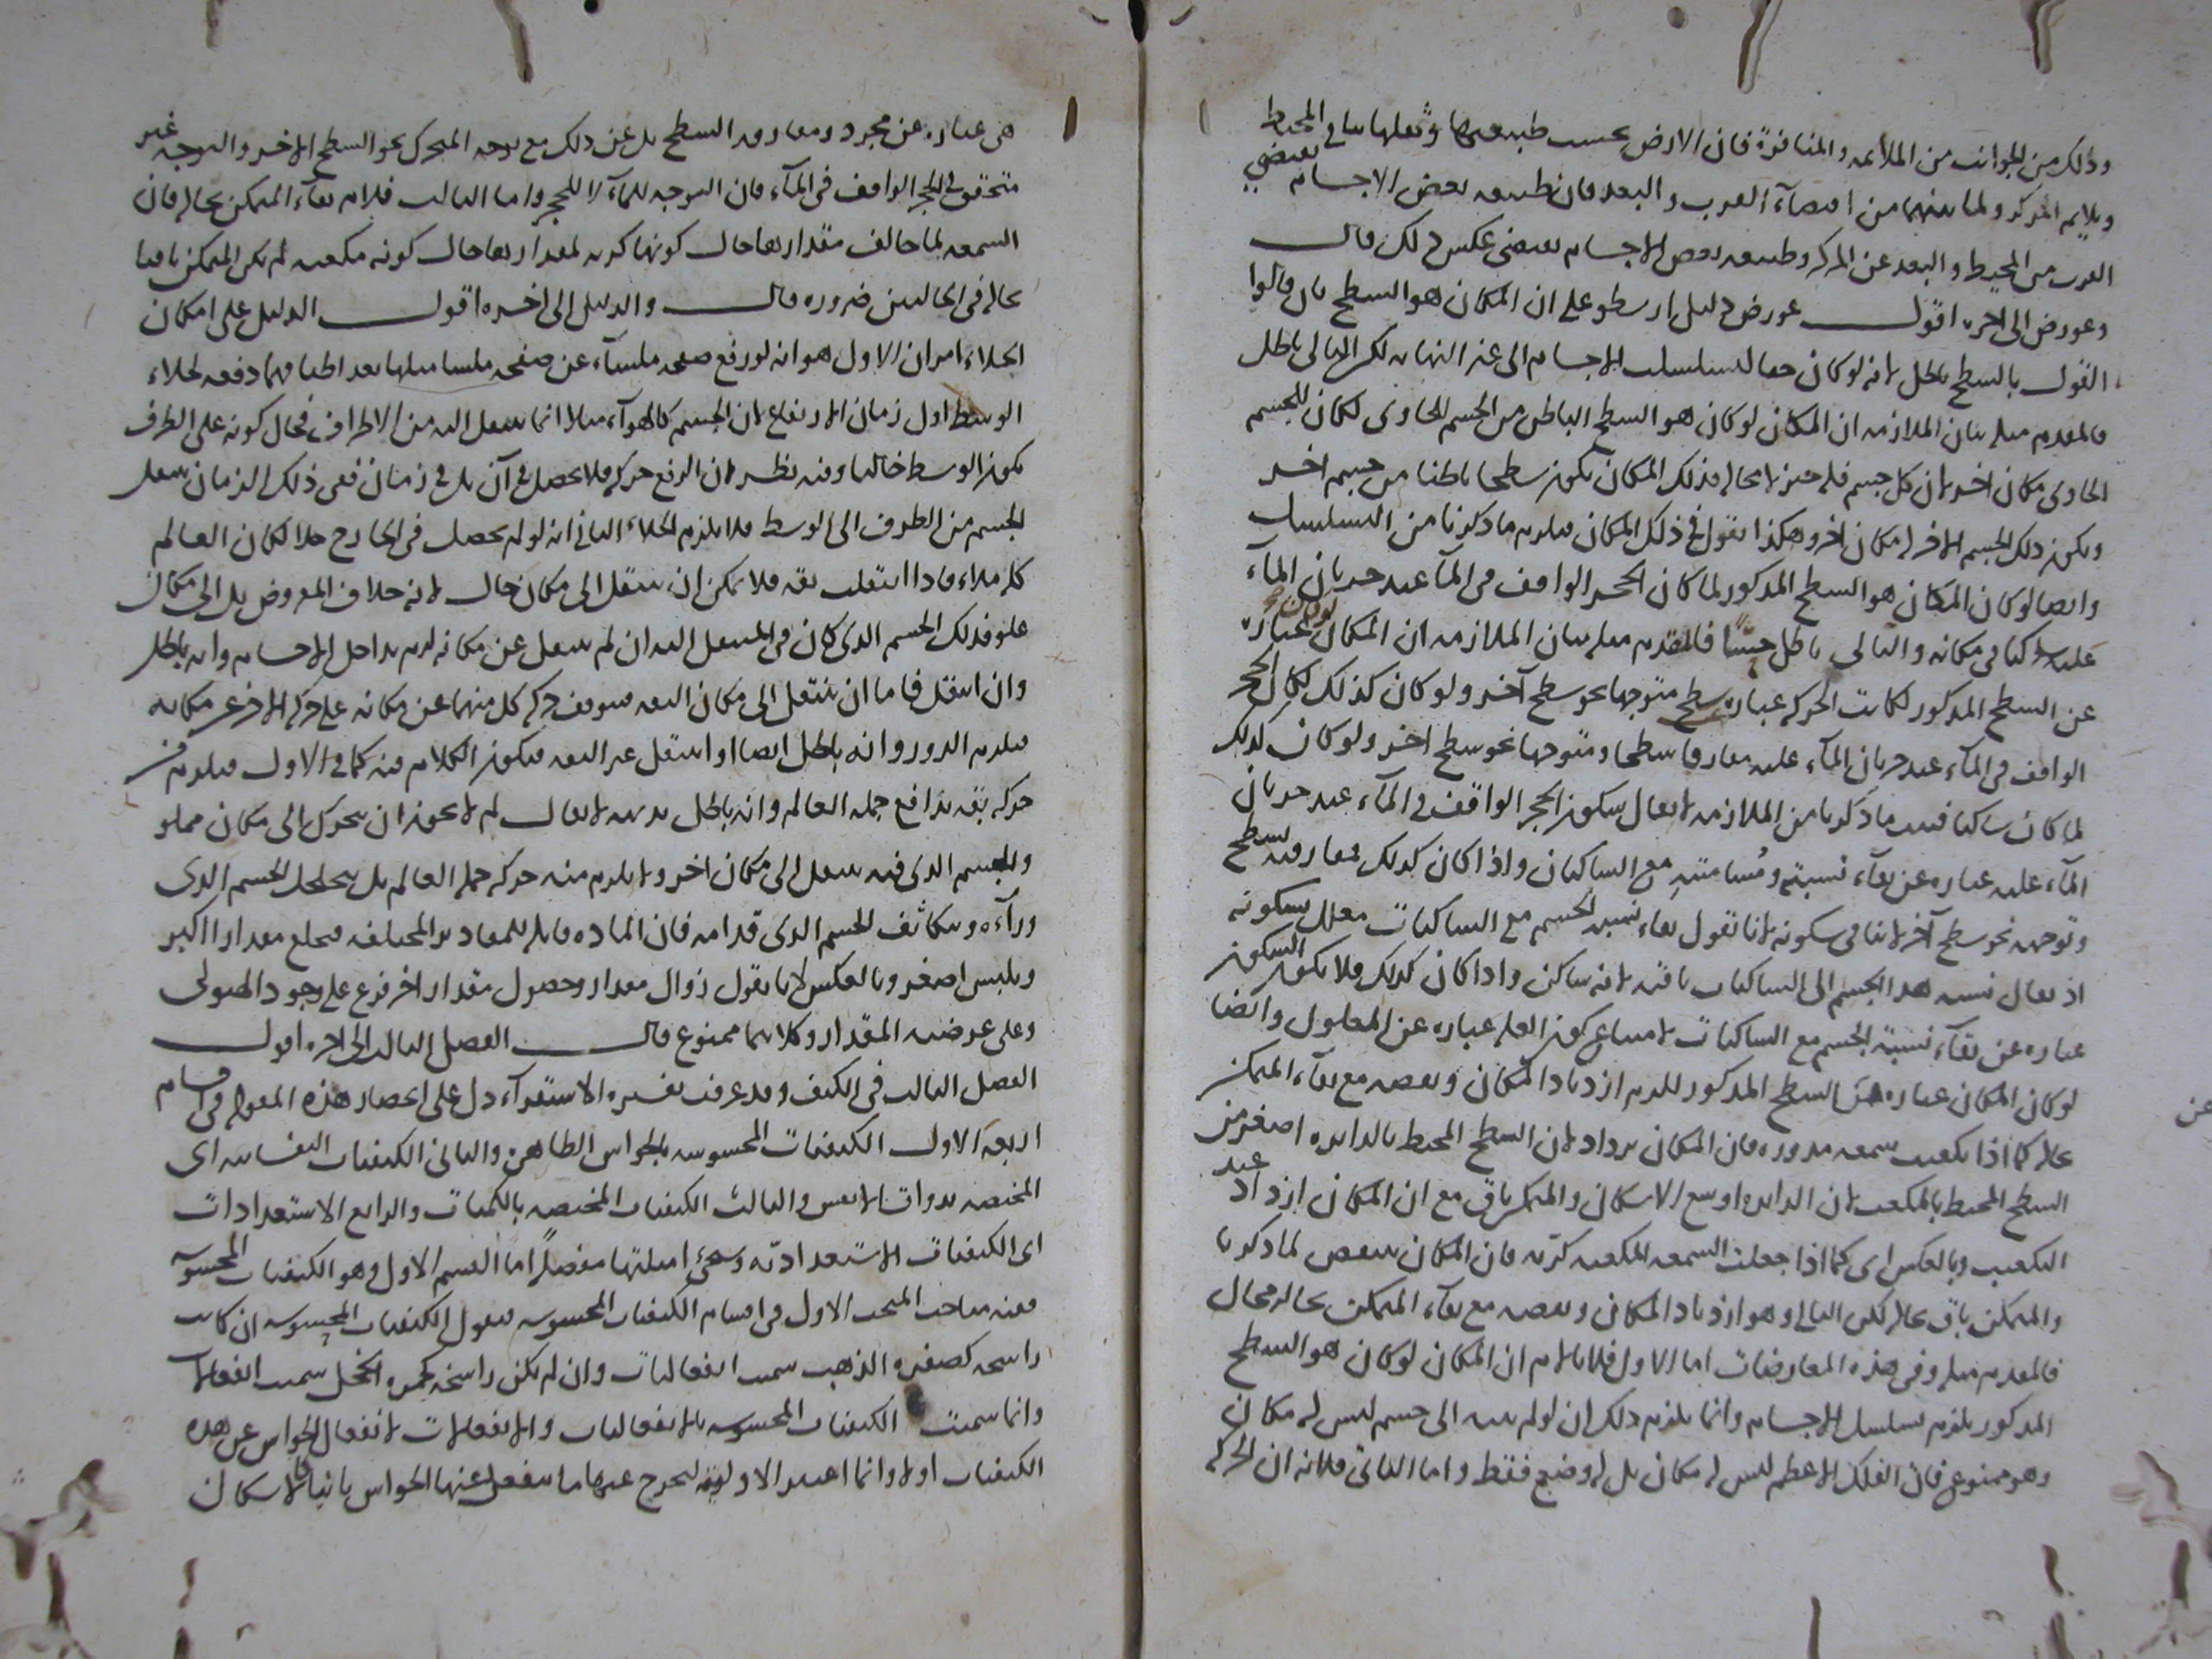 وذلك من الجوانب من الملائمه والمنافرة فان الارض بحسب طبيعتها وثقلها ينافي المحيط
ويلايم المركز ولما بينهما من اقتضآء القرب والبعد فان طبيعه بعض الاجسام يقتضي
القرب من المحيط والبعد عن المركز وطبيعه بعض الاجسام يقتضي عكس ذلك قال
وعورض الى اخره اقول عورض دليل ارسطو على ان المكان هو السطح بان قالوا
القول بالسطح باطل لانه لو كان حقا لتسلسلت الاجسام الى غير النهايه لكن التالي باطل
فالمقدم مثله بيان الملازمه ان المكان لو كان هو السطح الباطن من الجسم الحاوى لكان للجسم
الحاوى مكان اخر لان كل جسم فله حيز لا محاله فذلك المكان يكون سطحا باطنا من جسم اخر
ويكون ذلك الجسم الاخر له مكان اخر وهكذا نقول في ذلك المكان فيلزم ما ذكرنا من التسلسل
وايضا لو كان المكان هو السطح المذكور لما كان الحجر الواقف في المآ عند جريان المآء
عليه ساكنا في مكانه والتالي باطل حسًّا فالمقدم مثله بيان الملازمه ان المكان لو كان عبارة
عن السطح المذكور لكانت الحركه عبارة سطح متوجها نحو سطح آخر ولو كان كذلك لكان الحجر
الواقف في المآء عند جريان المآء عليه مفارقا سطحا ومتوجها نحو سطح اخر ولو كان كذلك
لما كان ساكنا فثبت ما ذكرنا من الملازمه لا يقال سكون الحجر الواقف في المآء عند جريان
المآء عليه عباره عن بقآء نسبته ومُسامتته مع الساكنات واذا كان كذلك فمفارقته سطح
وتوجهه نحو سطح آخر لا ينافى سكونه لانا نقول بقاء نسبه الجسم مع الساكنات معلل بسكونه
اذ يقال نسبه هذا الجسم الى الساكنات باقيه لانه ساكن واذا كان كذلك فلا يكون السكون
عباره عن بقآء نسبة الجسم مع الساكنات لامتناع كون العله عباره عن المعلول وايضا
لو كان المكان عباره عن السطح المذكور للزم ازدياد المكان ونقصه مع بقآء المتمكن
بحاله كما اذا تكعب شمعه مدوره فان المكان يزداد لان السطح المحيط بالدايره اصغر من
السطح المحيط بالمكعب لان الدايره اوسع الاشكال والمتمكن باق مع ان المكان ازداد عند
التكعيب وبالعكس اى كما اذا جعلت الشمعه المكعبه كريّه فان المكان ينتقص لما ذكرنا
والمتمكن باق بحاله لكن التالي وهو ازدياد المكان ونقصه مع بقآء المتمكن بحاله محال
فالمقدم مثله وفى هذه المعارضات اما الاول فلانا لانم ان المكان لو كان هو السطح
المذكور يلزم تسلسل الاجسام وانما يلزم ذلك ان لو لم ينته الى جسم ليس له مكان
وهو ممنوع فان الفلك الاعظم ليس له مكان بل له وضع فقط واما الثاني فلانه ان الحركه
هى عباره عن مجرد ومفارقه السطح بل عن ذلك مع توجه المتحرك نحو السطح الاخر والتوجه غير
متحقق فى الحجر الواقف فى المآء فان التوجه للمآء لا للحجر واما الثالث فلانم بقآء المتمكن بحاله فان
الشمعه لما خالف مقدارها حال كونها كريه لمقدارها حال كونه مكعبه لم يكن المتمكن باقيا
بحاله فى الحالتين ضروره قال والدليل الى اخره اقول الدليل على امكان
الخلاء امران الاول هو انه لو رفع صفحه ملسآء عن صفحه ملسا مثلها بعد اطباقهما دفعه لخلاء
الوسط اول زمان الارتفاع لان الجسم كالهوآء مثلا انما ينتقل اليه من الاطراف فحال كونه على الطرف
يكون الوسط خاليا وفيه نظر لان الرفع حركه فلا يحصل فى آن بل فى زمان ففى ذلك الزمان ينتقل
الجسم من الطرف الى الوسط فلا يلزم الخلاء الثانى انه لو لم يحصل فى الخارج خلا لكان العالم
كله ملاء فاذا انتقلت بقه فلا يمكن ان ينتقل الى مكان خال لانه خلاف المفروض بل الى مكان
مملو فذلك الجسم الذى كان فى المنتقل اليه ان لم ينتقل عن مكانه لزم تداخل الاجسام وانه باطل
وان انتقل فاما ان ينتقل الى مكان البقه فيتوقف حركه كل منهما عن مكانه على حركه الاخر عن مكانه
فيلزم الدور وانه باطل ايضا او انتقل عير البقه فيكون الكلام فيه كما فى الاول فيلزم من
حركه بقه تدافع جمله العالم وانه باطل بديهه لا يقال لم لا يجوز ان يتحرك الى مكان مملو
والجسم الذى فيه ينتقل الى مكان اخر ولا يلزم منه حركه جمله العالم بل يتخلخل الجسم الذى
ورآءه ويتكاثف الجسم الذى قدامه فان الماده قابله للمقادير المختلفه فيخلع مقدارا اكبر
ويلبس اصغر وبالعكس لانا نقول زوال مقدار وحصول مقدار اخر فرع على وجود الهيولى
وعلى عرضيه المقدار وكلاهما ممنوع قال الفصل الثالث الى اخره اقول
الفصل الثالث فى الكيف وقد عرفت تفسيره الاستقرآء دل على انحصار هذه المقوله فى اقسام
اربعه الاول الكيفيات المحسوسه بالحواس الظاهرة والثانى الكيفيات النفسانيه اى
المختصه بذوات الانفس والثالث الكيفيات المختصه بالكميات والرابع الاستعدادات
اى الكيفيات الاستعداديّه وسيجئ امثلتها مفصلاً اما القسم الاول وهو الكيفيات المحسوسه
ففيه مباحث المبحث الاول فى اقسام الكيفيات المحسوسه فنقول الكيفيات المحسوسه ان كانت
راسخه كصفره الذهب سميت انفعاليات وان لم يكن راسخه كحمره الخجل سميت انفعالات
وانما سميت الكيفيات المحسوسه بالانفعاليات والانفعالات لانفعال الحواس عن هذه
الكيفيات اولا وانما اعتبر الاوليه ليخرج عنها ما ينفعل عنها الحواس ثانيا كالاشكال